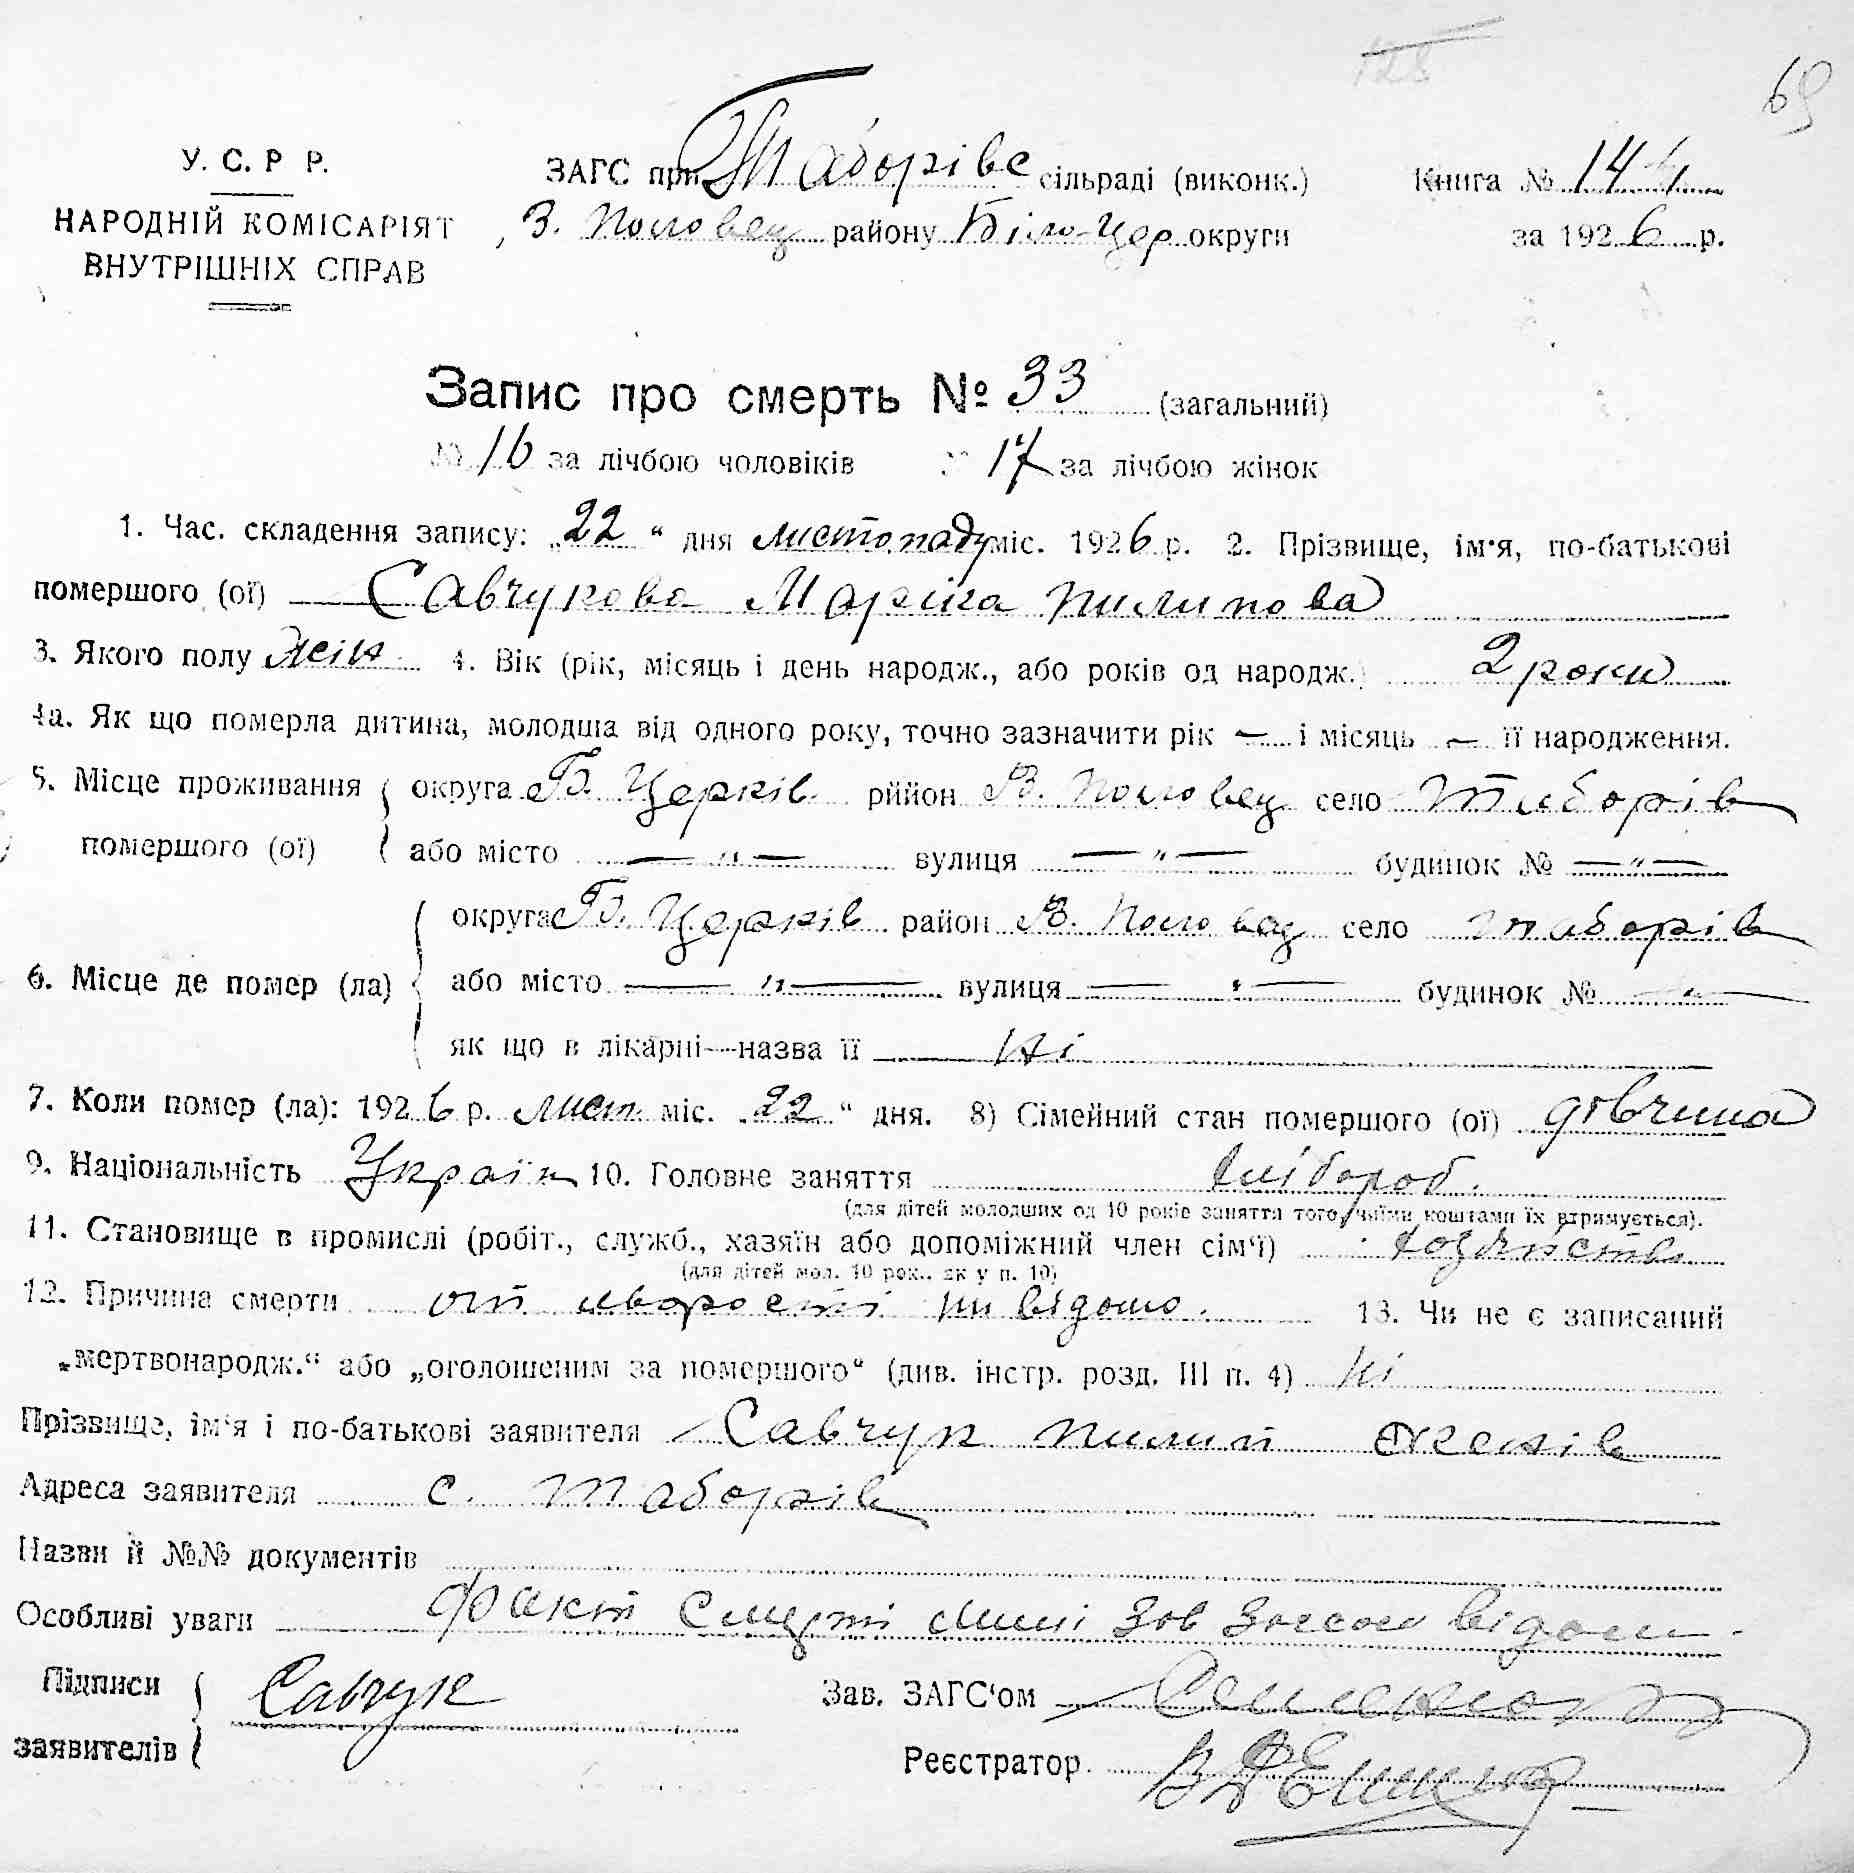 128
69
У. С. Р Р.
НАРОДНІЙ КОМІСАРІЯТ
ВНУТРІШНІХ СПРАВ
ЗАГС при Таборівс сільраді (виконк.)
З. Половец району Біло-Цер округи
Книга № 144
за 1926 р.
Запис про смерть № 33 (загальний)
№ 16 за лічбою чоловіків № 17 за лічбою жінок
1. Час. складення запису: „22“ дня листопаду міс. 1926 р. 2. Прізвище, ім'я, по-батькові
помершого (ої) Савчукова Марія Пилипова
3. Якого полу жін 4. Вік (рік, місяць і день народж., або років од народж.) 2 роки
4а. Як що померла дитина, молодша від одного року, точно зазначити рік — і місяць — її народження.
5. Місце проживання округа Б. Церків рййон В. Половец село Таборів
помершого (ої) або місто — „ — вулиця — „ — будинок № — „ —
округа Б. Церків район В. Половец село Таборів
6. Місце де помер (ла) або місто — „ — вулиця — „ — будинок № — „ —
як що в лікарні—назва її Ні
7. Коли помер (ла): 1926 р. лист. міс. „22“ дня. 8) Сімейний стан помершого (ої) дівчина
9. Національність Україн 10. Головне заняття хлібороб.
(для дітей молодших од 10 років заняття того, чиїми коштами їх втримується).
11. Становище в промислі (робіт., служб., хазяїн або допоміжний член сім'ї)
(для дітей мол. 10 рок., як у п. 10)
12. Причина смерти от хворості ни відомо. 13. Чи не є записаний
„мертвонародж.“ або „оголошеним за помершого“ (див. інстр. розд. III п. 4) Ні
Прізвище, ім'я і по-батькові заявителя Савчук Пилип
Адреса заявителя с. Таборів
Назви й №№ документів
Особливі уваги Факт смерті мині Зав Загсом відом.
Підписи
заявителів Савчук
Зав. ЗАГС'ом
Реєстратор